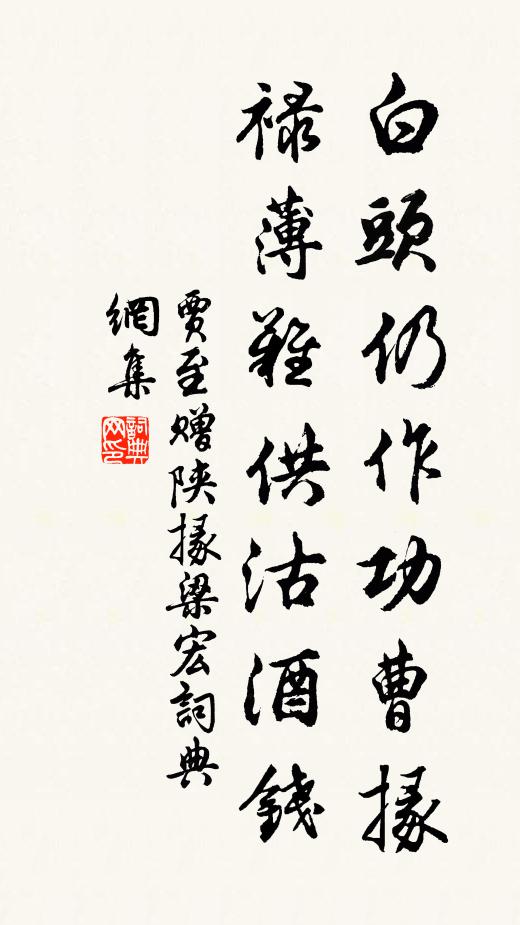 白頭仍作功曹掾
祿薄難供沽酒錢
賈至贈陝掾梁宏詞典
網集
詞典
网印